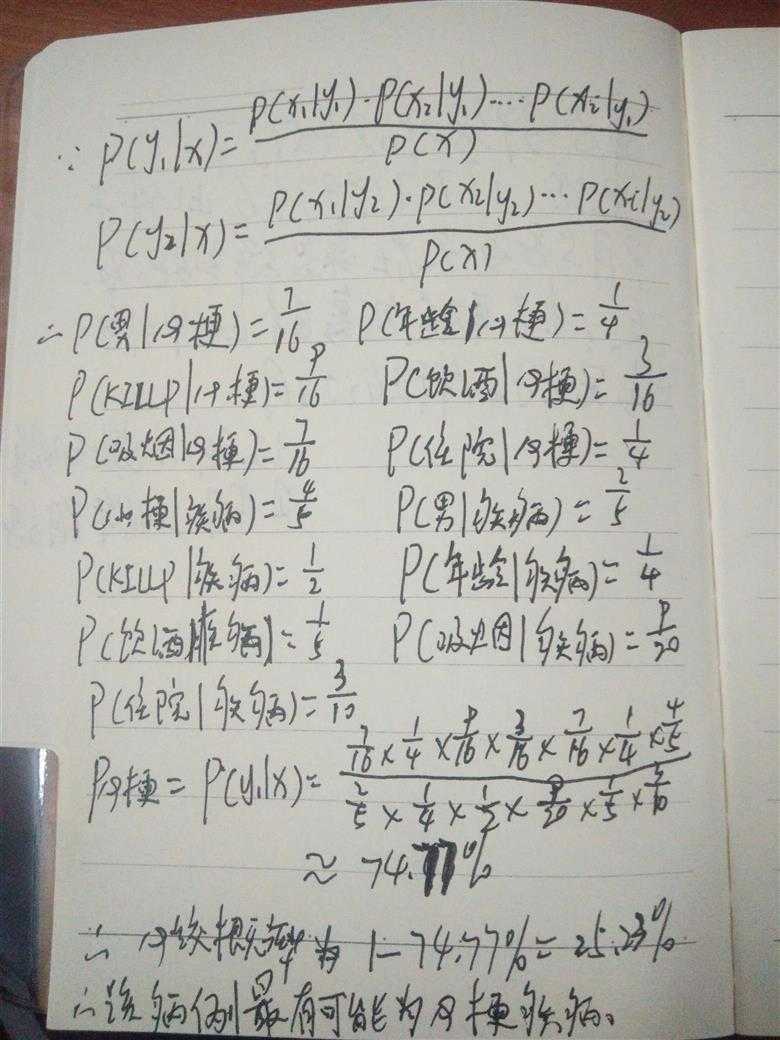 ∵ P(y₁|x) = P(x₁|y₁)·P(x₂|y₁)····P(xi|y₁) / P(x)
P(y₂|x) = P(x₁|y₂)·P(x₂|y₂)···P(xi|y₂) / P(x)
∴ P(男|心梗) = 7/16 P(年龄|心梗) = 1/4
P(KILLP|心梗) = 9/16 P(饮酒|心梗) = 3/16
P(吸烟|心梗) = 7/16 P(住院|心梗) = 1/4
P(心梗|疾病) = 4/5 P(男|疾病) = 2/5
P(KILLP|疾病) = 1/2 P(年龄|疾病) = 1/4
P(饮酒|疾病) = 1/5 P(吸烟|疾病) = 9/20
P(住院|疾病) = 3/10
P心梗 = P(y₁|x) = 7/16 × 1/4 × 9/16 × 3/16 × 7/16 × 1/4 × 4/5 / 2/5 × 1/4 × 1/2 × 9/20 × 1/5 × 3/10
≈ 74.77%
∴ 心绞痛 为 1-74.77% = 25.23%
∴ 该病例最有可能为心梗疾病。